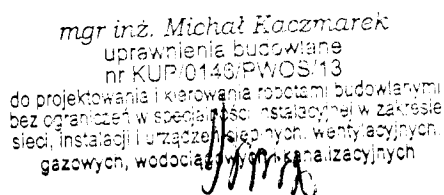 mgr inż. Michał Kaczmarek
uprawnienia budowlane
nr KUP/0146/PWOS/13
do projektowania i kierowania robotami budowlanymi
bez ograniczeń w specjalności instalacyjnej w zakresie
sieci, instalacji i urządzeń cieplnych, wentylacyjnych,
gazowych, wodociągowych i kanalizacyjnych